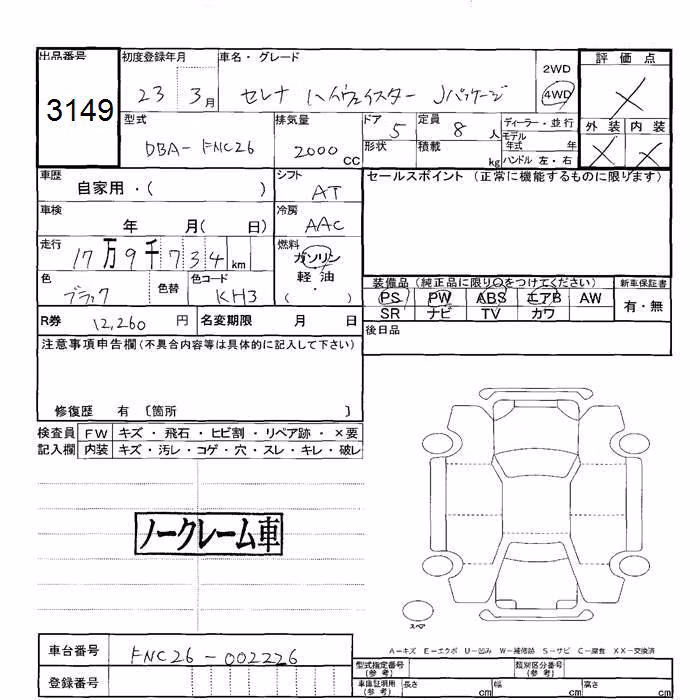 出品番号 初度登録年月 車名・グレード 2WD 評価点
3149 23 3月 セレナ ハイウェイスター Jパッケージ 4WD
型式 排気量 ドア 定員 ディーラー・並行 外装 内装
DBA-FNC26 2000 CC 5 8 人 モデル年式 年
形状 積載 kg ハンドル 左・右
車歴 自家用・( ) シフト AT セールスポイント (正常に機能するものに限ります)
車検 年 月( 日) 冷房 AAC
走行 17万9千734km 燃料 ガソリン
軽油
( ・ )
色 ブラック 色替 色コード KH3 装備品 (純正品に限り○をつけてください) 新車保証書
PS PW ABS エアB AW 有・無
SR ナビ TV カワ
R券 12,260 円 名変期限 月 日 後日品
注意事項申告欄(不具合内容等は具体的に記入して下さい)
修復歴 有 〔箇所 〕
検査員 FW キズ・飛石・ヒビ割・リペア跡・×要
記入欄 内装 キズ・汚レ・コゲ・穴・スレ・キレ・破レ
ノークレーム車
スペア
A-キズ E-エクボ U-凹み W-補修跡 S-サビ C-腐食 XX-交換済
車台番号 FNC26-002226 型式指定番号(参考) 類別区分番号(参考)
登録番号 車庫証明用(参考) 長さ cm 幅 cm 高さ cm